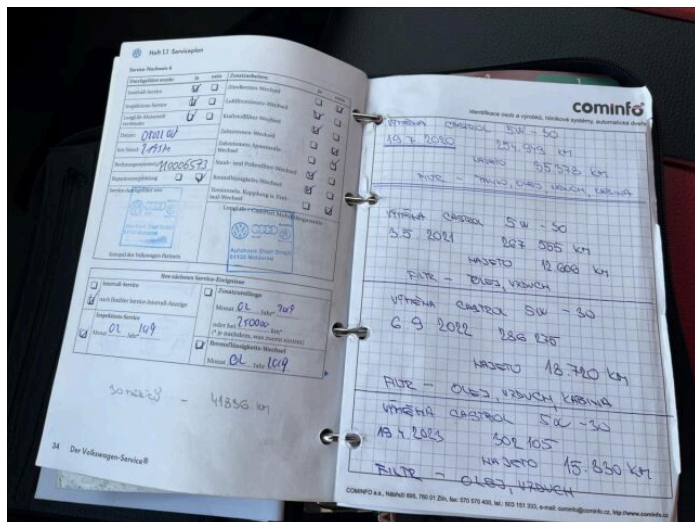 Heft 1.1 Serviceplan
Service-Nachweis 6
Durchgeführt wurde: ja nein
Intervall-Service
Inspektions-Service
LongLife-Motoröl verwendet
Datum:
km-Stand:
Rechnungsnummer 110006573
Reparaturempfehlung
Service durchgeführt von:
Stempel des Volkswagen Partners
Zusatzarbeiten: ja nein
Zündkerzen-Wechsel
Luftfiltereinsatz-Wechsel
Kraftstofffilter-Wechsel
Zahnriemen-Wechsel
Staub- und Pollenfilter-Wechsel
Bremsflüssigkeits-Wechsel
Ihre nächsten Service-Ereignisse
Intervall-Service
nach flexibler Service-Intervall-Anzeige
Inspektions-Service
Monat 02 Jahr 2019
Zusatzumfänge
Monat 02 Jahr* 2019
oder bei 250000 km*
(* je nachdem, was zuerst eintritt)
Bremsflüssigkeits-Wechsel
Monat 02 Jahr 2019
30 měsíců - 41836 km
34 Der Volkswagen-Service®
cominfo
Identifikace osob a výrobků, turniketové systémy, automatické dveře
VÝMĚNA CASTROL 5W-30
19.7 2020 254.949 km
NAJETO 35.378 km
VÝMĚNA CASTROL 5W-30
3.5. 2021 267 555 km
NAJETO 12.606 km
FILTR - OLEJ, VZDUCH
VÝMĚNA CASTROL 5W-30
6.9 2022 286 275
NAJETO 18.720 km
FILTR - OLEJ, VZDUCH, KABINA
VÝMĚNA CASTROL 5W-30
19.4.2023 302 105
NAJETO 15.830 km
FILTR - OLEJ, VZDUCH
COMINFO a.s., Nábřeží 695, 760 01 Zlín, fax: 570 570 400, tel.: 603 151 333, e-mail: cominfo@cominfo.cz, http://www.cominfo.cz